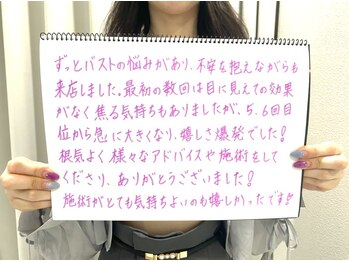 ずっとバストの悩みがあり、不安を抱えながらも
来店しました。最初の数回は目に見えての効果
がなく焦る気持ちもありましたが、5、6回目
位から急に大きくなり、嬉しさ爆発でした！
根気よく様々なアドバイスや施術をして
くださり、ありがとうございました！
施術がとても気持ちよいのも嬉しかったです!!